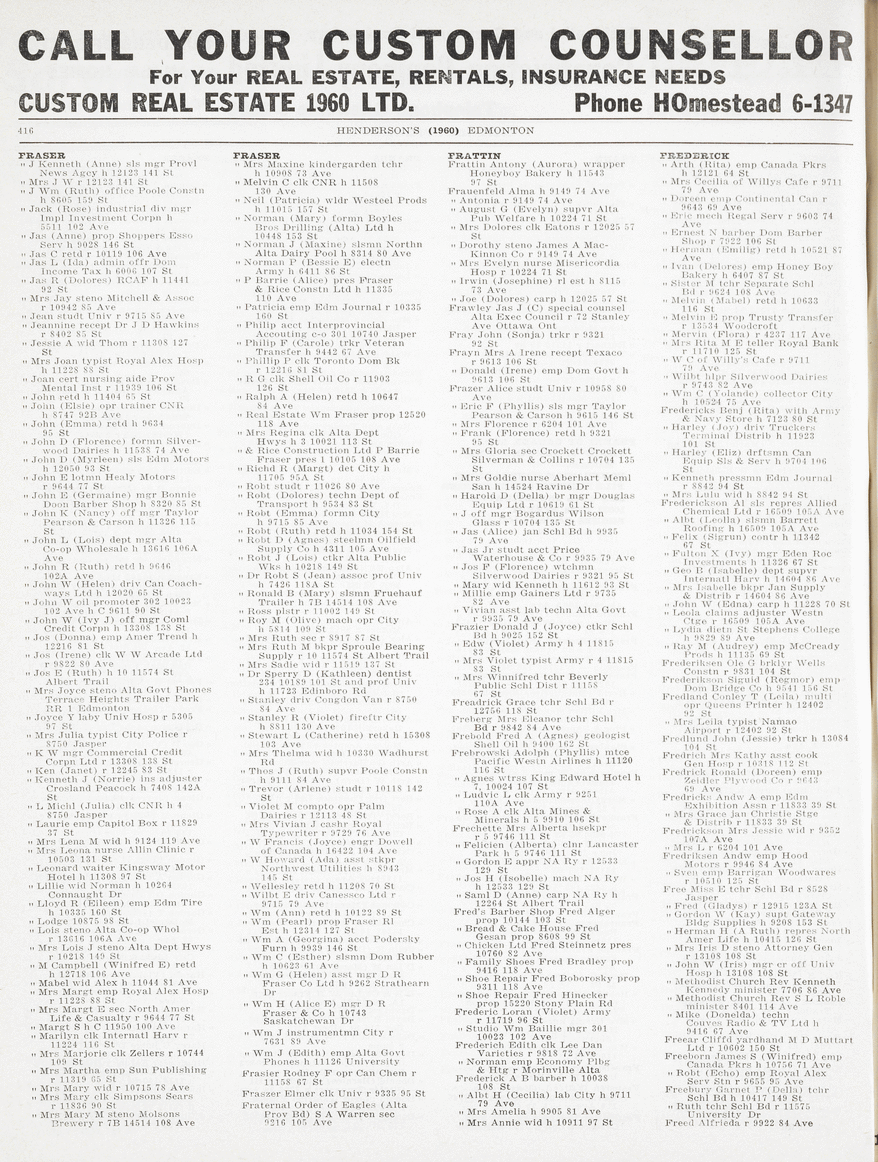 CALL YOUR CUSTOM COUNSELLOR
For Your REAL ESTATE, RENTALS, INSURANCE NEEDS
CUSTOM REAL ESTATE 1960 LTD. Phone HOmestead 6-1347
416 HENDERSON'S (1960) EDMONTON
FRASER
" J Kenneth (Anne) sls mgr Provl
News Agcy h 12123 141 St
" Mrs J W r 12123 141 St
" J Wm (Ruth) office Poole Constn
h 8605 159 St
" Jack (Rose) industrial div mgr
Impl Investment Corpn h
5511 102 Ave
" Jas (Anne) prop Shoppers Esso
Serv h 9028 146 St
" Jas C retd r 10119 106 Ave
" Jas L (Ida) admin offr Dom
Income Tax h 6006 107 St
" Jas R (Dolores) RCAF h 11441
92 St
" Mrs Jay steno Mitchell & Assoc
r 10942 85 Ave
" Jean studt Univ r 9715 85 Ave
" Jeannine recept Dr J D Hawkins
r 8402 85 St
" Jessie A wid Thom r 11308 127
St
" Mrs Joan typist Royal Alex Hosp
h 11228 88 St
" Joan cert nursing aide Prov
Mental Inst r 11939 106 St
" John retd h 11404 65 St
" John (Elsie) opr trainer CNR
h 8747 92B Ave
" John (Emma) retd h 9634
95 St
" John D (Florence) formn Silver-
wood Dairies h 11538 74 Ave
" John D (Myrleen) sls Edm Motors
h 12050 93 St
" John E lotmn Healy Motors
r 9644 77 St
" John E (Germaine) mgr Bonnie
Doon Barber Shop h 8320 85 St
" John K (Nancy) off mgr Taylor
Pearson & Carson h 11326 115
St
" John L (Lois) dept mgr Alta
Co-op Wholesale h 13616 106A
Ave
" John R (Ruth) retd h 9646
102A Ave
" John W (Helen) driv Can Coach-
ways Ltd h 12020 65 St
" John W oil promoter 302 10023
102 Ave h C 9611 90 St
" John W (Ivy J) off mgr Coml
Credit Corpn h 13308 138 St
" Jos (Donna) emp Amer Trend h
12216 81 St
" Jos (Irene) clk W W Arcade Ltd
r 9832 80 Ave
" Jos E (Ruth) h 10 11574 St
Albert Trail
" Mrs Joyce steno Alta Govt Phones
Terrace Heights Trailer Park
RR 1 Edmonton
" Joyce Y laby Univ Hosp r 5305
97 St
" Mrs Julia typist City Police r
8750 Jasper
" K W mgr Commercial Credit
Corpn Ltd r 13308 138 St
" Ken (Janet) r 12245 83 St
" Kenneth J (Norrie) ins adjuster
Crosland Peacock h 7408 142A
St
" L Michl (Julia) clk CNR h 4
8750 Jasper
" Laurie emp Capitol Box r 11829
37 St
" Mrs Lena M wid h 9124 119 Ave
" Mrs Leona nurse Allin Clinic r
10503 131 St
" Leonard waiter Kingsway Motor
Hotel h 11308 97 St
" Lillie wid Norman h 10264
Connaught Dr
" Lloyd R (Eileen) emp Edm Tire
h 10335 160 St
" Lodge 10875 98 St
" Lois steno Alta Co-op Whol
r 13616 106A Ave
" Mrs Lois J steno Alta Dept Hwys
r 10218 149 St
" M Campbell (Winifred E) retd
h 12718 106 Ave
" Mabel wid Alex h 11044 81 Ave
" Mrs Margt emp Royal Alex Hosp
r 11228 88 St
" Mrs Margt E sec North Amer
Life & Casualty r 9644 77 St
" Margt S h C 11950 100 Ave
" Marilyn clk Internatl Harv r
11224 116 St
" Mrs Marjorie clk Zellers r 10744
109 St
" Mrs Martha emp Sun Publishing
r 11319 65 St
" Mrs Mary wid r 10715 78 Ave
" Mrs Mary clk Simpsons Sears
r 11836 90 St
" Mrs Mary M steno Molsons
Brewery r 7B 14514 108 Ave
FRASER
" Mrs Maxine kindergarden tchr
h 10908 73 Ave
" Melvin C clk CNR h 11508
130 Ave
" Neil (Patricia) wldr Westeel Prods
h 11015 157 St
" Norman (Mary) formn Boyles
Bros Drilling (Alta) Ltd h
10448 153 St
" Norman J (Maxine) slsmn Northn
Alta Dairy Pool h 8314 80 Ave
" Norman P (Bessie E) electn
Army h 6411 86 St
" P Barrie (Alice) pres Fraser
& Rice Constn Ltd h 11335
110 Ave
" Patricia emp Edm Journal r 10335
160 St
" Philip acct Interprovincial
Accouting c-o 301 10740 Jasper
" Philip F (Carole) trkr Veteran
Transfer h 9442 67 Ave
" Phillip P clk Toronto Dom Bk
r 12216 81 St
" R G clk Shell Oil Co r 11903
126 St
" Ralph A (Helen) retd h 10647
84 Ave
" Real Estate Wm Fraser prop 12520
118 Ave
" Mrs Regina clk Alta Dept
Hwys h 3 10021 113 St
" & Rice Construction Ltd P Barrie
Fraser pres 1 10105 108 Ave
" Richd R (Margt) det City h
11705 95A St
" Robt studt r 11026 80 Ave
" Robt (Dolores) techn Dept of
Transport h 9534 83 St
" Robt (Emma) formn City
h 9715 85 Ave
" Robt (Ruth) retd h 11034 154 St
" Robt D (Agnes) steelmn Oilfield
Supply Co h 4311 105 Ave
" Robt J (Lois) ctkr Alta Public
Wks h 10218 149 St
" Dr Robt S (Jean) assoc prof Univ
h 7426 118A St
" Ronald B (Mary) slsmn Fruehauf
Trailer h 7B 14514 108 Ave
" Ross plstr r 11002 149 St
" Roy M (Olive) mach opr City
h 5814 109 St
" Mrs Ruth sec r 8917 87 St
" Mrs Ruth M bkpr Sproule Bearing
Supply r 10 11574 St Albert Trail
" Mrs Sadie wid r 11519 137 St
" Dr Sperry D (Kathleen) dentist
234 10189 101 St and prof Univ
h 11723 Edinboro Rd
" Stanley driv Congdon Van r 8750
84 Ave
" Stanley R (Violet) fireftr City
h 8811 130 Ave
" Stewart L (Catherine) retd h 15308
103 Ave
" Mrs Thelma wid h 10330 Wadhurst
Rd
" Thos J (Ruth) supvr Poole Constn
h 9111 84 Ave
" Trevor (Arlene) studt r 10118 142
St
" Violet M compto opr Palm
Dairies r 12113 48 St
" Mrs Vivian J cashr Royal
Typewriter r 9729 76 Ave
" W Francis (Joyce) engr Dowell
of Canada h 16422 104 Ave
" W Howard (Ada) asst stkpr
Northwest Utilities h 8943
145 St
" Wellesley retd h 11208 70 St
" Wilbt E driv Canessco Ltd r
9715 79 Ave
" Wm (Ann) retd h 10122 89 St
" Wm (Pearl) prop Fraser Rl
Est h 12314 127 St
" Wm A (Georgina) acct Podersky
Furn h 9939 146 St
" Wm C (Esther) slsmn Dom Rubber
h 10623 61 Ave
" Wm G (Helen) asst mgr D R
Fraser Co Ltd h 9262 Strathearn
Dr
" Wm H (Alice E) mgr D R
Fraser & Co h 10743
Saskatchewan Dr
" Wm J instrumentmn City r
7631 89 Ave
" Wm J (Edith) emp Alta Govt
Phones h 11126 University
Frasier Rodney F opr Can Chem r
11158 67 St
Fraszer Elmer clk Univ r 9335 95 St
Fraternal Order of Eagles (Alta
Prov Bd) S A Warren sec
9216 105 Ave
FRATTIN
Frattin Antony (Aurora) wrapper
Honeyboy Bakery h 11543
97 St
Frauenfeld Alma h 9149 74 Ave
" Antonia r 9149 74 Ave
" August G (Evelyn) supvr Alta
Pub Welfare h 10224 71 St
" Mrs Dolores clk Eatons r 12025 57
St
" Dorothy steno James A Mac-
Kinnon Co r 9149 74 Ave
" Mrs Evelyn nurse Misericordia
Hosp r 10224 71 St
" Irwin (Josephine) rl est h 8115
73 Ave
" Joe (Dolores) carp h 12025 57 St
Frawley Jas J (C) special counsel
Alta Exec Counell r 72 Stanley
Ave Ottawa Ont
Fray John (Sonja) trkr r 9321
92 St
Frayn Mrs A Irene recept Texaco
r 9613 106 St
" Donald (Irene) emp Dom Govt h
9613 106 St
Frazer Alice studt Univ r 10958 80
Ave
" Eric F (Phyllis) sls mgr Taylor
Pearson & Carson h 9615 146 St
" Mrs Florence r 6204 101 Ave
" Frank (Florence) retd h 9321
95 St
" Mrs Gloria sec Crockett Crockett
Silverman & Collins r 10704 135
St
" Mrs Goldie nurse Aberhart Meml
San h 14524 Ravine Dr
" Harold D (Della) br mgr Douglas
Equip Ltd r 10619 61 St
" J off mgr Bogardus Wilson
Glass r 10704 135 St
" Jas (Alice) jan Schl Bd h 9935
79 Ave
" Jas Jr studt acct Price
Waterhouse & Co r 9935 79 Ave
" Jos F (Florence) wtchmn
Silverwood Dairies r 9321 95 St
" Mary wid Kenneth h 11612 93 St
" Millie emp Gainers Ltd r 9735
82 Ave
" Vivian asst lab techn Alta Govt
r 9935 79 Ave
Frazier Donald J (Joyce) ctkr Schl
Bd h 9025 152 St
" Edw (Violet) Army h 4 11815
83 St
" Mrs Violet typist Army r 4 11815
83 St
" Mrs Winnifred tchr Beverly
Public Schl Dist r 11158
67 St
Freadrick Grace tchr Schl Bd r
12756 118 St
Freberg Mrs Eleanor tchr Schl
Bd r 9842 84 Ave
Frebold Fred A (Agnes) geologist
Shell Oil h 9400 162 St
Frebrowski Adolph (Phyllis) mtce
Pacific Westn Airlines h 11120
116 St
" Agnes wtrss King Edward Hotel h
7, 10024 107 St
" Ludvic L clk Army r 9251
110A Ave
" Rose A clk Alta Mines &
Minerals h 5 9910 106 St
Frechette Mrs Alberta hsekpr
r 5 9746 111 St
" Felicien (Alberta) clnr Lancaster
Park h 5 9746 111 St
" Gordon E appr NA Ry r 12533
129 St
" Jos H (Isobelle) mach NA Ry
h 12533 129 St
" Saml D (Anne) carp NA Ry h
12264 St Albert Trail
Fred's Barber Shop Fred Alger
prop 10144 103 St
" Bread & Cake House Fred
Gesan prop 8608 99 St
" Chicken Ltd Fred Steinnetz pres
10760 82 Ave
" Family Shoes Fred Bradley prop
9416 118 Ave
" Shoe Repair Fred Boborosky prop
9311 118 Ave
" Shoe Repair Fred Hinecker
prop 15220 Stony Plain Rd
Frederic Loran (Violet) Army
r 11719 96 St
" Studio Wm Baillie mgr 301
10023 102 Ave
Frederich Edith clk Lee Dan
Varieties r 9818 72 Ave
" Norman emp Economy Plbg
& Htg r Morinville Alta
Frederick A B barber h 10038
108 St
" Albt H (Cecilia) lab City h 9711
79 Ave
" Mrs Amelia h 9905 81 Ave
" Mrs Annie wid h 10911 97 St
FREDERICK
" Arth (Rita) emp Canada Pkrs
h 12121 64 St
" Mrs Cecilia of Willys Cafe r 9711
79 Ave
" Doreen emp Continental Can r
9643 69 Ave
" Eric mech Regal Serv r 9603 74
Ave
" Ernest N barber Dom Barber
Shop r 7922 106 St
" Herman (Emilig) retd h 10521 87
Ave
" Ivan (Delores) emp Honey Boy
Bakery h 6407 87 St
" Sister M tchr Separate Schl
Bd r 9624 108 Ave
" Melvin (Mabel) retd h 10633
116 St
" Melvin E prop Trusty Transfer
r 13534 Woodcroft
" Mervin (Flora) r 4237 117 Ave
" Mrs Rita M E teller Royal Bank
r 11710 125 St
" W C of Willy's Cafe r 9711
79 Ave
" Wilbt hlpr Silverwood Dairies
r 9743 82 Ave
" Wm C (Yolande) collector City
h 10524 75 Ave
Fredericks Benj (Rita) with Army
& Navy Store h 7123 80 St
" Harley (Joy) driv Truckers
Terminal Distrib h 11923
101 St
" Harley (Eliz) drftsmn Can
Equip Sls & Serv h 9704 106
St
" Kenneth pressmn Edm Journal
r 8842 94 St
" Mrs Lulu wid h 8842 94 St
Frederickson Al sls repres Allied
Chemical Ltd r 16509 105A Ave
" Albt (Leolla) slsmn Barrett
Roofing h 16509 105A Ave
" Felix (Sigrun) contr h 11342
67 St
" Fulton X (Ivy) mgr Eden Roc
Investments h 11326 67 St
" Geo B (Isabelle) dept supvr
Internatl Harv h 14604 86 Ave
" Mrs Isabelle bkpr Jan Supply
& Distrib r 14604 86 Ave
" John W (Edna) carp h 11228 70 St
" Leola claims adjuster Westn
Ctge r 16509 105A Ave
" Lydia dietn St Stephens College
h 9829 89 Ave
" Ray M (Audrey) emp McCready
Prods h 11135 69 St
Frederiksen Ole G brklyr Wells
Constn r 9831 104 St
Frederikson Siguid (Regmor) emp
Dom Bridge Co h 9541 156 St
Fredland Conley T (Leila) multi
opr Queens Printer h 12402
92 St
" Mrs Leila typist Namao
Airport r 12402 92 St
Fredlund John (Jessie) trkr h 13084
104 St
Fredrich Mrs Kathy asst cook
Gen Hosp r 10318 112 St
Fredrick Ronald (Doreen) emp
Zeidler Plywood Co r 9643
69 Ave
Fredricks Andw A emp Edm
Exhibition Assn r 11833 39 St
" Mrs Grace jan Christie Stge
& Distrib r 11833 39 St
Fredrickson Mrs Jessie wid r 9352
107A Ave
" Mrs L r 6204 101 Ave
Fredriksen Andw emp Hood
Motors r 9946 84 Ave
" Sven emp Barrigan Woodwares
r 10510 125 St
Free Miss E tchr Schl Bd r 8528
Jasper
" Fred (Gladys) r 12915 123A St
" Gordon W (Kay) supt Gateway
Bldg Supplies h 9208 153 St
" Herman H (A Ruth) repres North
Amer Life h 10415 126 St
" Mrs Iris D steno Attorney Gen
r 13108 108 St
" John W (Iris) mgr cr off Univ
Hosp h 13108 108 St
" Methodist Church Rev Kenneth
Kennedy minister 7706 86 Ave
" Methodist Church Rev S L Roble
minister 8401 114 Ave
" Mike (Donelda) techn
Couves Radio & TV Ltd h
9416 67 Ave
Freear Cliffd yardhand M D Muttart
Ltd r 10602 150 St
Freeborn James S (Winifred) emp
Canada Pkrs h 10756 71 Ave
" Robt (Echo) emp Royal Alex
Serv Stn r 9655 95 Ave
Freebury Garnet P (Della) tchr
Schl Bd h 10417 149 St
" Ruth tchr Schl Bd r 11575
University Dr
Freed Alfrieda r 9922 84 Ave